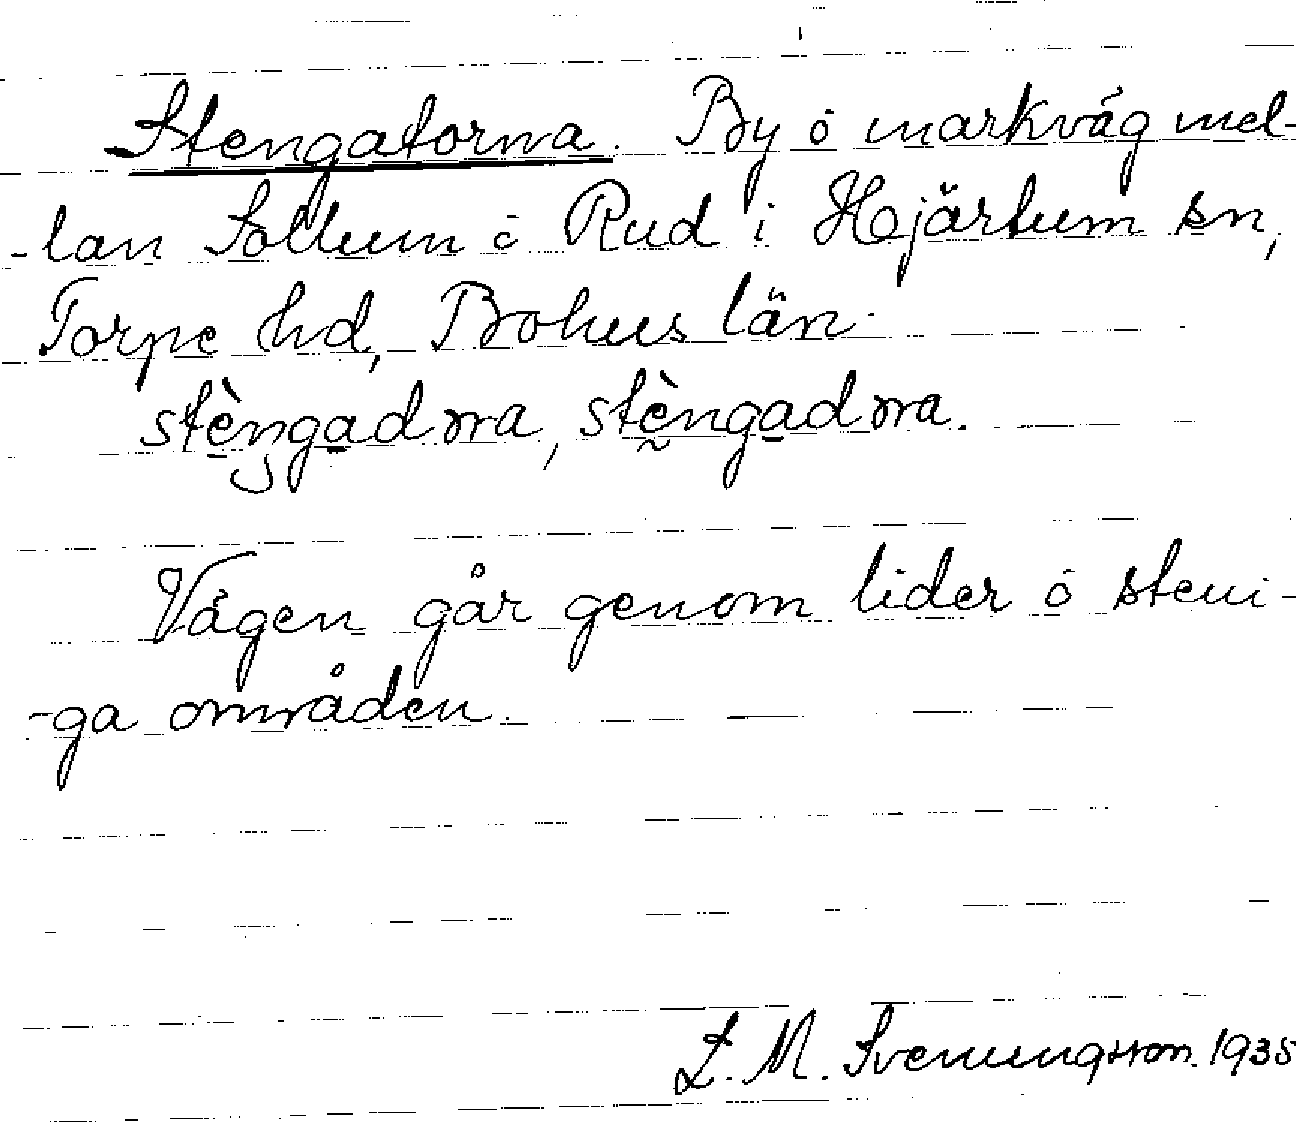 Stengatorna. By ó markväg mel-
-lan Sollum ó Rud i Hjärtum sn,
Torpe hd, Bohus län.
stèngadɷra, stèngadɷra.
Vägen går genom lider ó steni-
-ga områden.
L. M. Svenungsson. 1935